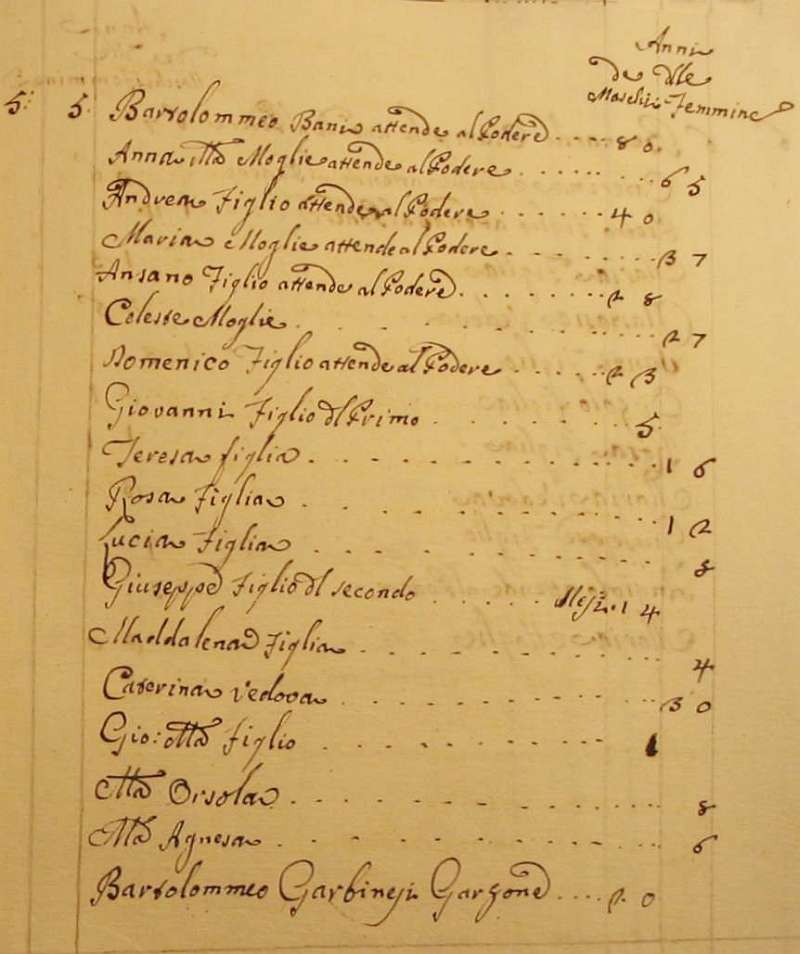 Anni
De Me
Maschi - Femmine
5: 5. Bartolommeo Banis attende al Podere .... 80.
Anna Ma Moglie attende al Podere ....... 65
Andrea Figlio attende al Podere ...... 40
Maria Moglie attende al Podere ....... 37
Ansano Figlio attende al Podere ....... 28
Celeste Moglie ....... 27
Domenico Figlio attende al Podere ...... 23
Giovanni Figlio del Primo ...... 5
Teresa figlia ....... 16
Rosa Figlia ....... 12
Lucia Figlia ....... 8
Giuseppe Figlio del secondo ..... Mesi. 14
Maddalena Figlia ....... 4
Caterina Vedova ....... 30
Gio: Btta figlio ....... 1
Ma Orsola ....... 8
Ma Agnesa ....... 6
Bartolommeo Garbinesi Garzone .... 20